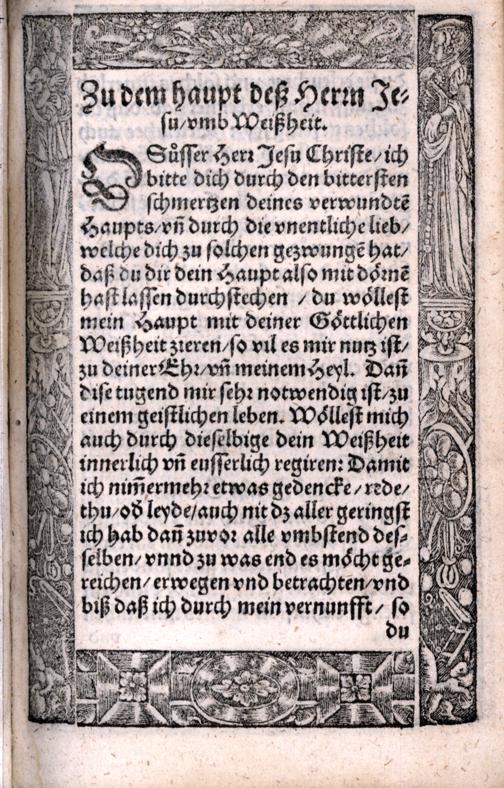 Zu dem haupt deß Herrn Je-
su/vmb Weißheit.
O Süsser Herr Jesu Christe/ich
bitte dich durch den bittersten
schmertzen deines verwundtē
Haupts/vn̄ durch die vnentliche lieb/
welche dich zu solchen gezwungē hat/
daß du dir dein Haupt also mit dörnē
hast lassen durchstechen / du wöllest
mein Haupt mit deiner Göttlichen
Weißheit zieren/so vil es mir nutz ist/
zu deiner Ehr/vn̄ meinem Heyl. Dan̄
dise tugend mir sehr notwendig ist/zu
einem geistlichen leben. Wöllest mich
auch durch dieselbige dein Weißheit
innerlich vn̄ eusserlich regiren: Damit
ich nim̄ermehr etwas gedencke/rede/
thu/od̄ leyde/auch nit dz aller geringst
ich hab dan̄ zuvor alle vmbstend des-
selben/vnnd zu was end es möcht ge-
reichen/erwegen vnd betrachten/vnd
biß daß ich durch mein vernunfft/ so
du